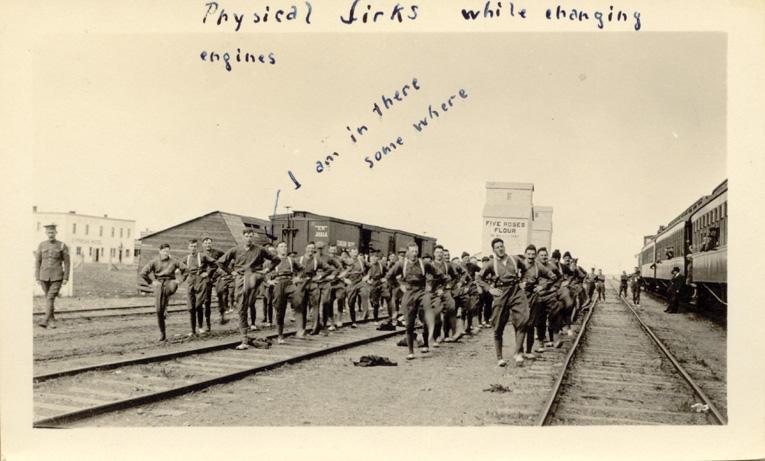 Physical Jirks while changing
engines
I am in there
some where
FIVE ROSES
FLOUR